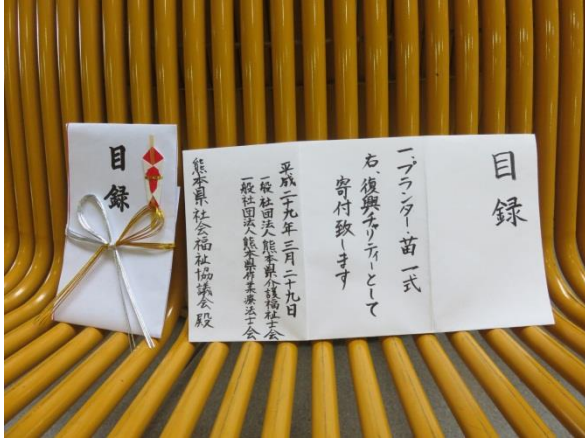 目録
目録
一、プランター・苗 一式
右、復興チャリティーとして
寄付致します
平成二十九年三月二十九日
一般社団法人熊本県介護福祉士会
一般社団法人熊本県作業療法士会
熊本県社会福祉協議会殿